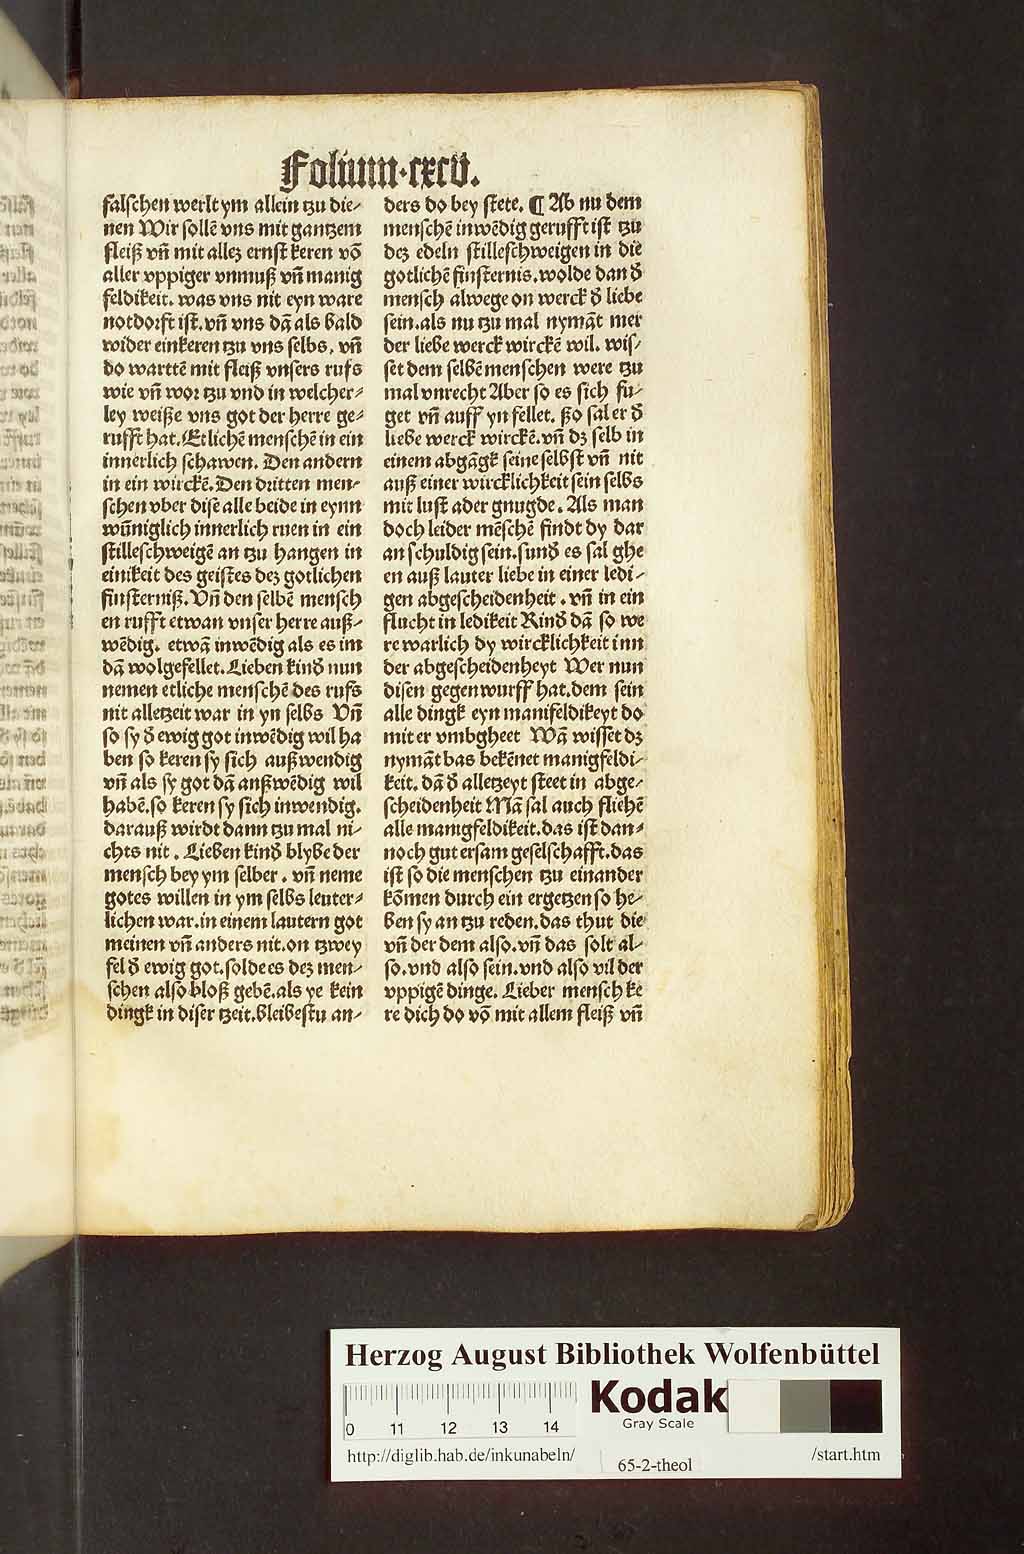 Folium·cxcv.
falschen werlt ym allein tzu die⸗
nen Wir sollē vns mit gantzem
fleiß vñ mit allez ernst keren vō
aller vppiger vnmuß vñ manig
feldikeit. was vns nit eyn ware
notdorft ist. vñ vns dā als bald
wider einkeren tzu vns selbs, vñ
do warttē mit fleiß vnsers rufs
wie vñ wor tzu vnd in welcher⸗
ley weiße vns got der herre ge⸗
rufft hat. Etlichē menschē in ein
innerlich schawen. Den andern
in ein wirckē. Den dritten men⸗
schen vber dise alle beide in eynn
wūniglich innerlich ruen in ein
stilleschweigē an tzu hangen in
einikeit des geistes dez gotlichen
finsterniß. Vñ den selbē mensch
en rufft etwan vnser herre auß⸗
wēdig. etwā inwēdig als es im
dā wolgefellet. Lieben kind̄ nun
nemen etliche menschē des rufs
nit alletzeit war in yn selbs Vñ
so sy d̄ ewig got inwēdig wil ha
ben so keren sy sich außwendig
vñ als sy got dā anßwēdig wil
habē. so keren sy sich inwendig.
darauß wirdt dann tzu mal ni⸗
chts nit. Lieben kind̄ blybe der
mensch bey ym selber. vñ neme
gotes willen in ym selbs leuter⸗
lichen war. in einem lautern got
meinen vñ anders nit. on tzwey
fel d̄ ewig got. solde es dez men⸗
schen also bloß gebē. als ye kein
dingk in diser tzeit. bleibestu an⸗
ders do bey stete. ¶ Ab nu dem
menschē inwēdig gerufft ist tzu
dez edeln stilleschweigen in die
gotlichē finsternis. wolde dan d̄
mensch alwege on werck d̄ liebe
sein. als nu tzu mal nymāt mer
der liebe werck wirckē wil. wis⸗
set dem selbē menschen were tzu
mal vnrecht Aber so es sich fu⸗
get vñ auff yn fellet. ßo sal er d̄
liebe werck wirckē. vñ dz selb in
einem abgāgk seine selbst vñ nit
auß einer wircklichkeit sein selbs
mit lust ader gnugde. Als man
doch leider mēschē findt dy dar
an schuldig sein. sund̄ es sal ghe
en auß lauter liebe in einer ledi⸗
gen abgescheidenheit. vñ in ein
flucht in ledikeit Kind̄ dā so we
re warlich dy wircklichkeit inn
der abgescheidenheyt Wer nun
disen gegenwurff hat. dem sein
alle dingk eyn manifeldikeyt do
mit er vmbgheet Wā wisset dz
nymāt bas bekēnet manigfeldi⸗
keit. dā d̄ alletzeyt steet in abge⸗
scheidenheit Mā sal auch fliehē
alle manigfeldikeit. das ist dan⸗
noch gut ersam geselschafft. das
ist so die menschen tzu einander
kōmen durch ein ergetzen so he⸗
ben sy an tzu reden. das thut die
vñ der dem also. vñ das solt al⸗
so. vnd also sein. vnd also vil der
vppigē dinge. Lieber mensch ke
re dich do vō mit allem fleiß vñ
Herzog August Bibliothek Wolfenbüttel
0 11 12 13 14
Kodak
Gray Scale
http://diglib.hab.de/inkunabeln/ 65-2-theol /start.htm